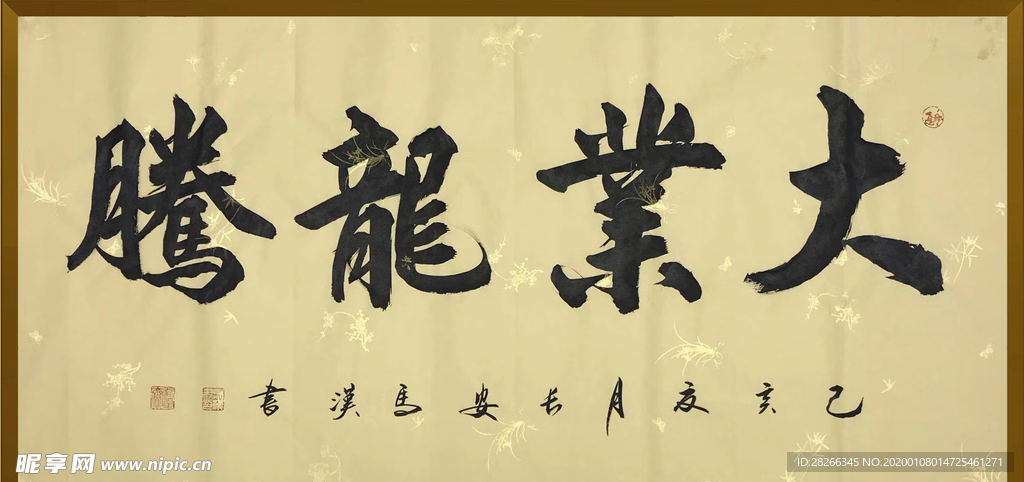 大業龍騰
己亥夏月長安馬漢書
昵享网 www.nipic.cn
ID:28266345 NO:20200108014725461271